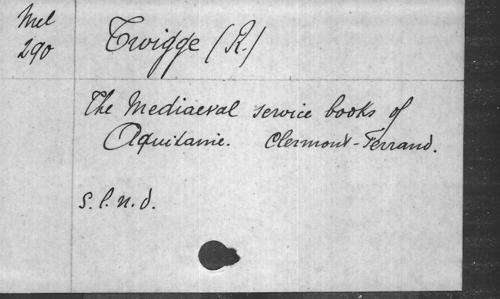 Mel
290
Twigge (R.)
The Mediaeval service books of
Aquitanie. Clermont-Ferrand.
s.l.n.d.